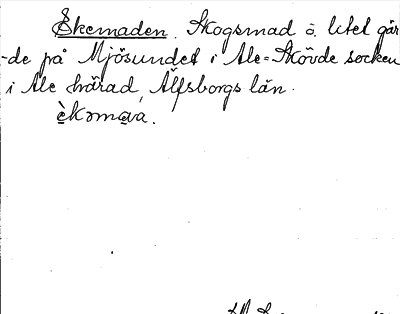 Ekemaden. Skogsmad o. litet går
-de på Mjösundet i Ale-Skövde socken
i Ale härad, Älfsborgs län.
èkəmàva.